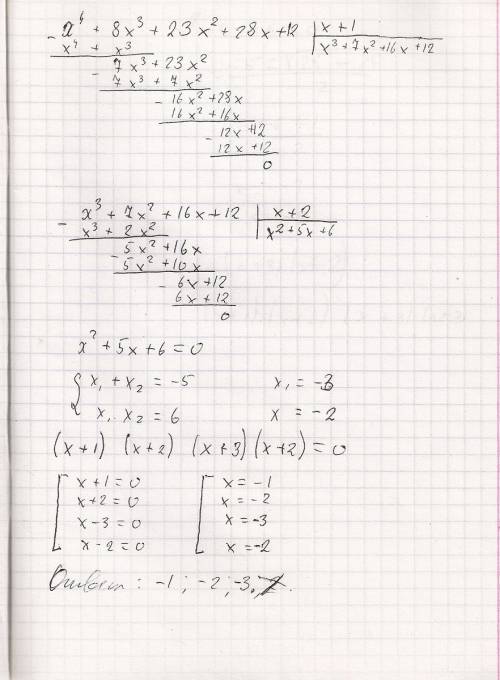 - x⁴ + 8x³ + 23x² + 28x + 12 | x + 1
x⁴ + x³ | x³ + 7x² + 16x + 12
7x³ + 23x²
- 7x³ + 7x²
- 16x² + 28x
16x² + 16x
- 12x + 12
12x + 12
0
- x³ + 7x² + 16x + 12 | x + 2
x³ + 2x² | x² + 5x + 6
- 5x² + 16x
5x² + 10x
- 6x + 12
6x + 12
0
x² + 5x + 6 = 0
{ x₁ + x₂ = -5 x₁ = -3
x₁ · x₂ = 6 x = -2
(x+1) (x+2) (x+3) (x+2) = 0
[ x + 1 = 0 [ x = -1
x + 2 = 0 x = -2
x - 3 = 0 x = -3
x - 2 = 0 x = -2
Ответ : -1 ; -2 ; -3.